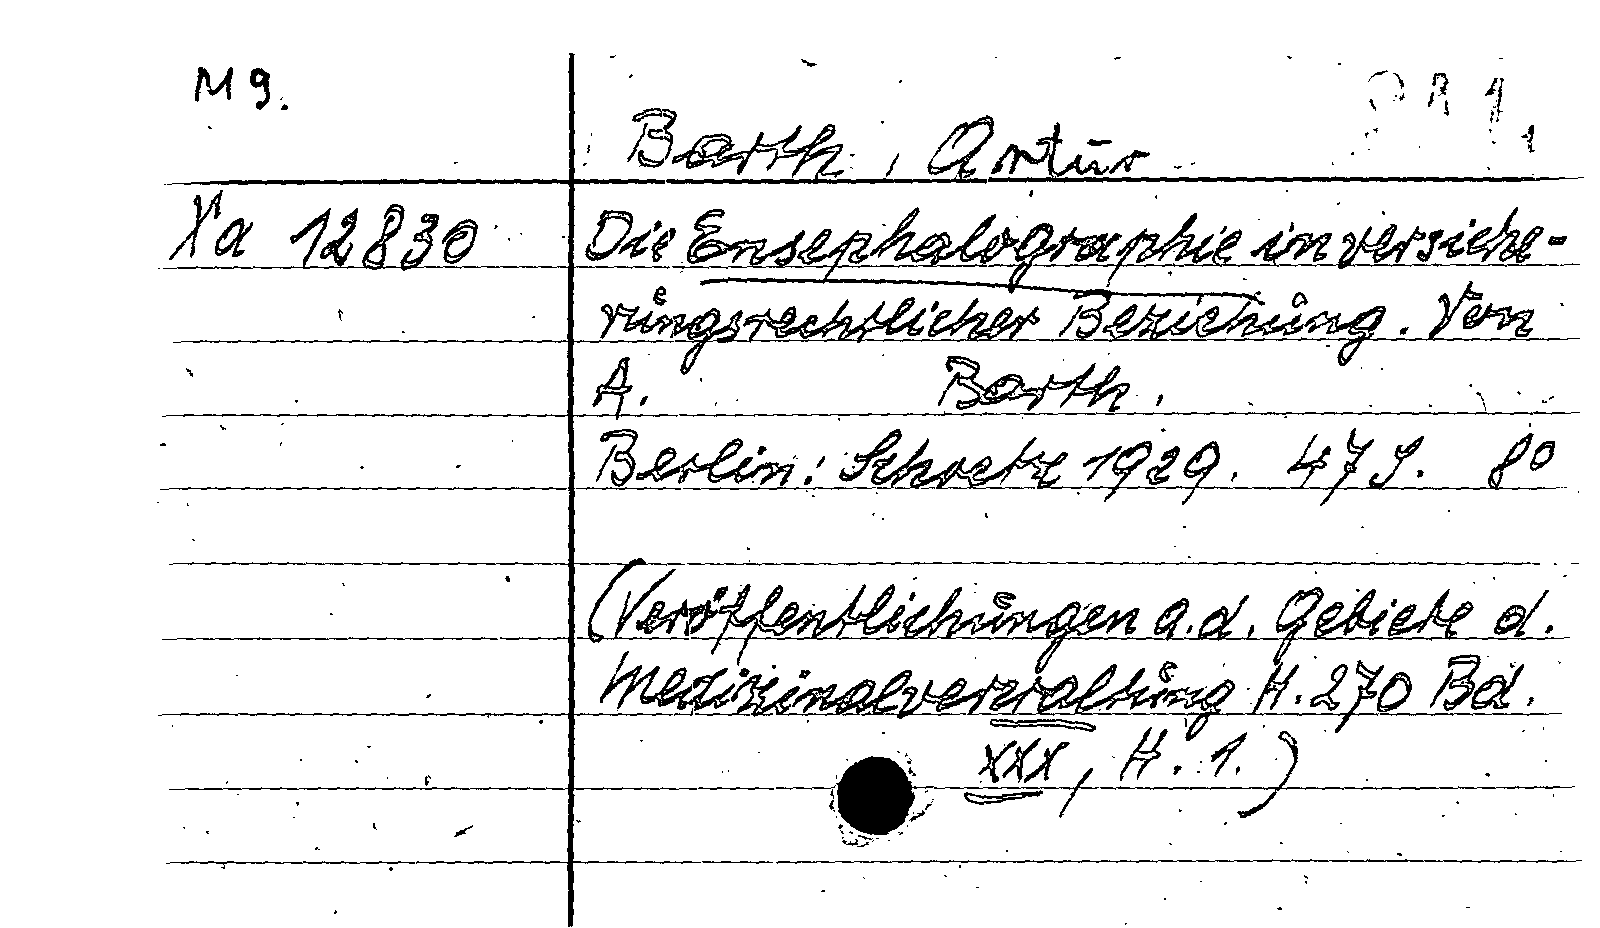 M 9.
Barth, Artur
Xa 12830
Die Ensephalographie in versiche-
rungsrechtlicher Beziehung. Von
A. Barth.
Berlin: Schoetz 1929. 47 S. 8°
(Veröffentlichungen a. d. Gebiete d.
Medizinalverwaltung H. 270 Bd.
XXX, H. 1.)